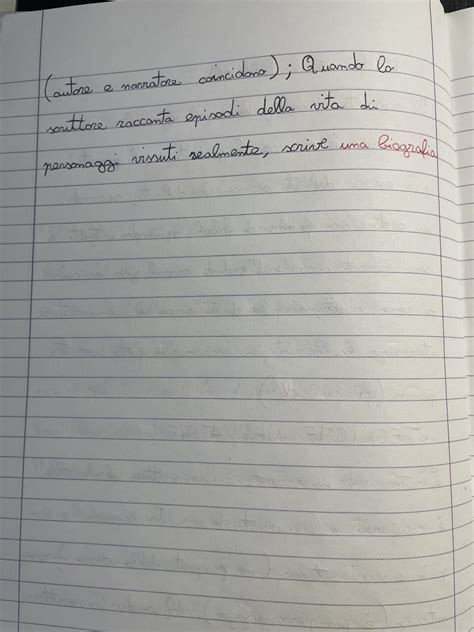 (autore e narratore coincidono); Quando lo
scrittore racconta episodi della vita di
personaggi vissuti realmente, scrive una biografia